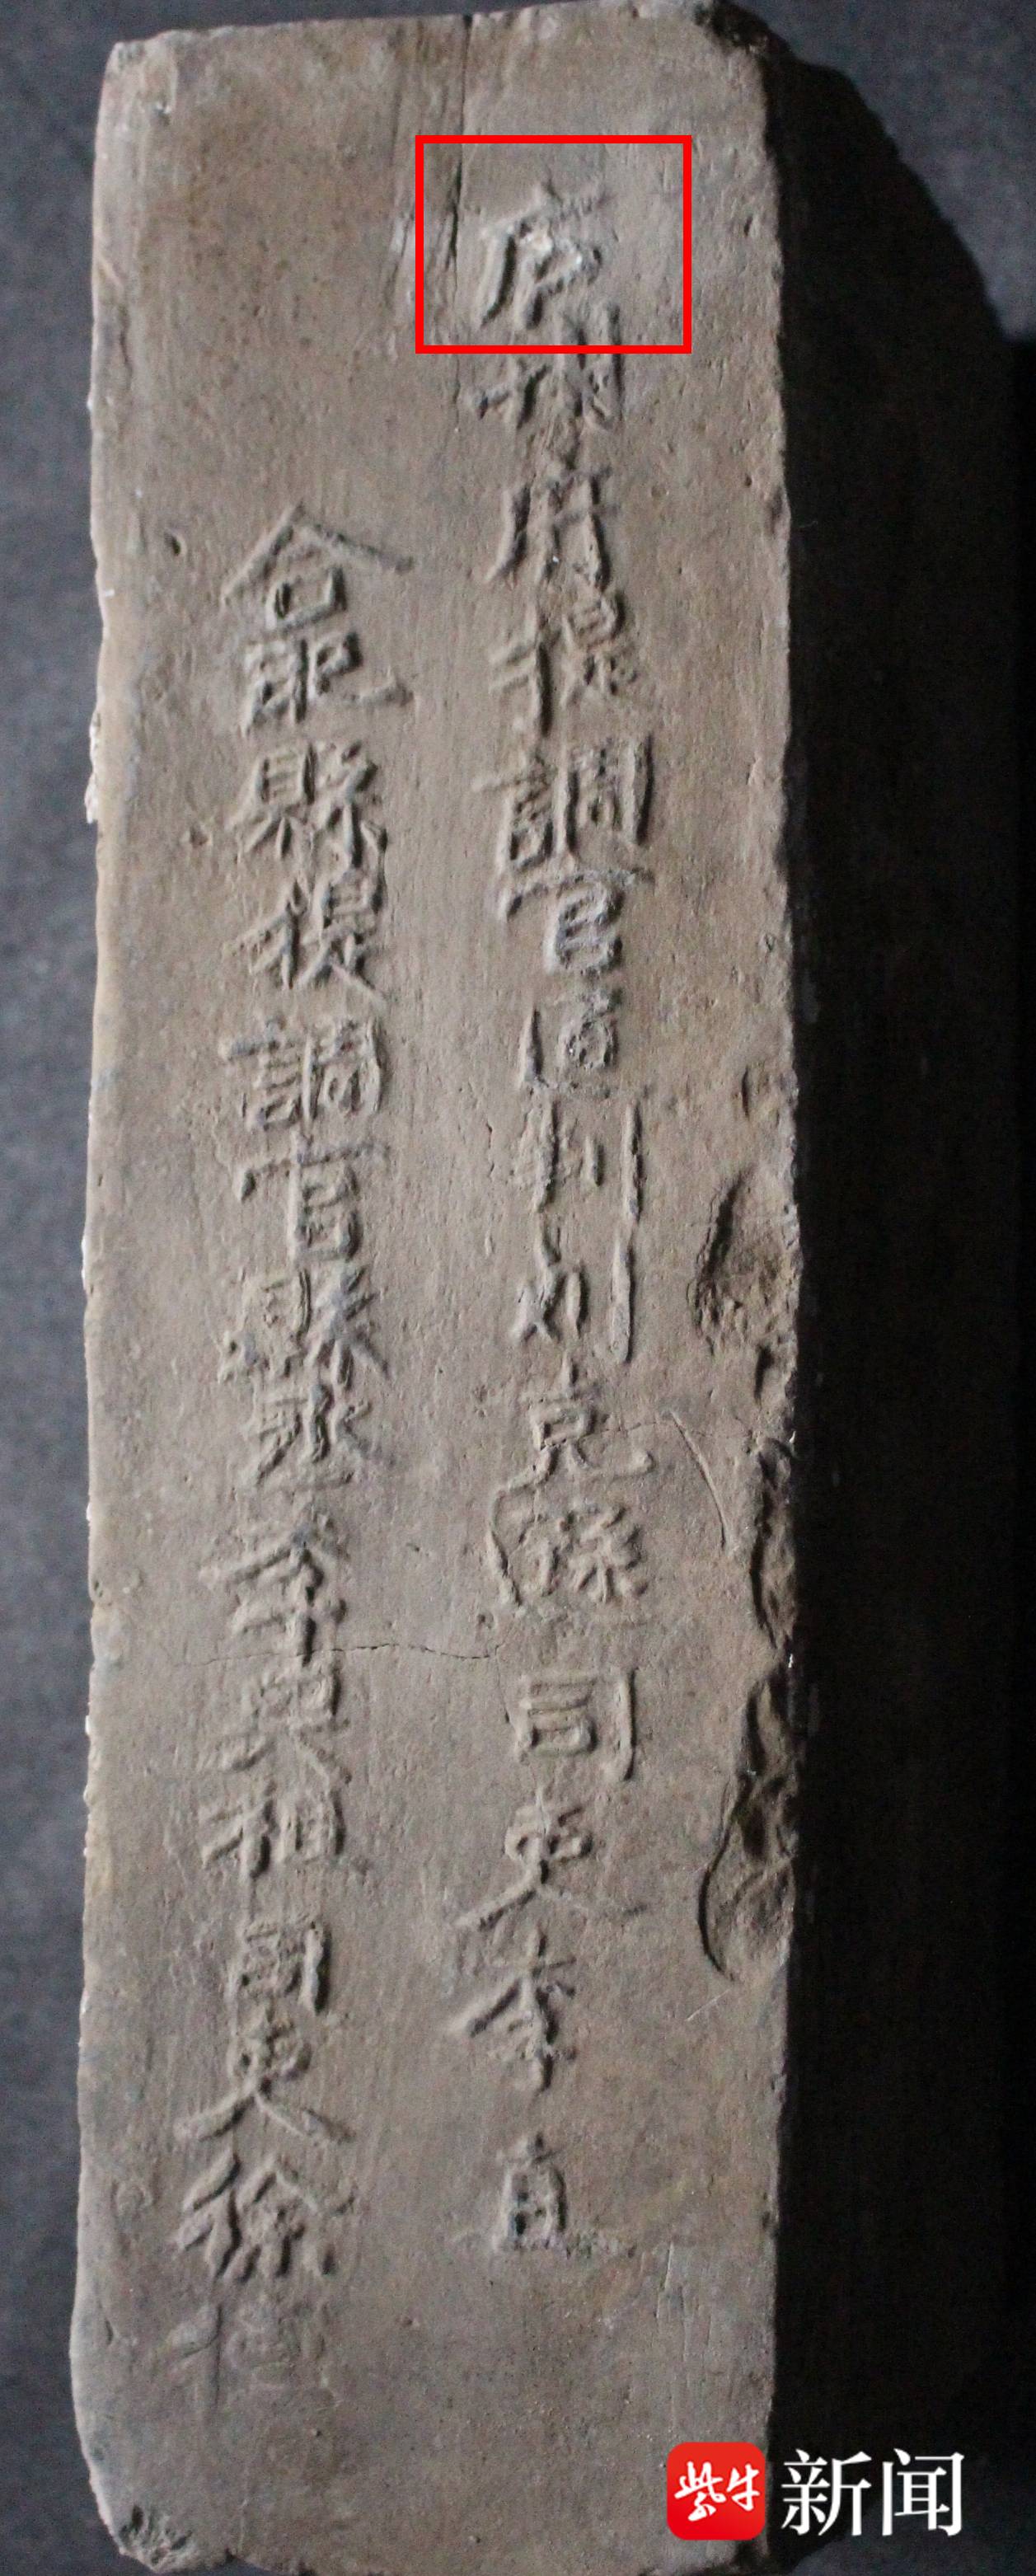 庐州府提調官通判刘克孫司吏李直
合肥縣提調官縣丞司吏徐
紫牛新闻